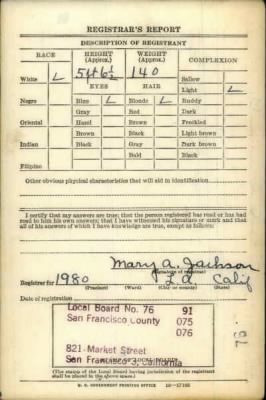 REGISTRAR'S REPORT
DESCRIPTION OF REGISTRANT
RACE HEIGHT (Approx.) WEIGHT (Approx.) COMPLEXION
White 5 ft 6½ 140 Sallow
EYES HAIR Light
Negro Blue Blonde Ruddy
Gray Red Dark
Oriental Hazel Brown Freckled
Brown Black Light brown
Indian Black Gray Dark brown
Bald Black
Filipino
Other obvious physical characteristics that will aid in identification
I certify that my answers are true; that the person registered has read or has had
read to him his own answers; that I have witnessed his signature or mark and that
all of his answers of which I have knowledge are true, except as follows:
Mary A. Jackson
Registrar for 1980 L.A. Calif
(Precinct) (Ward) (City or county) (State)
Date of registration
Local Board No. 76 91
San Francisco County 075
076
821 Market Street
San Francisco 3, California
(The stamp of the Local Board having jurisdiction of the registrant
shall be placed in the above space.)
U. S. GOVERNMENT PRINTING OFFICE